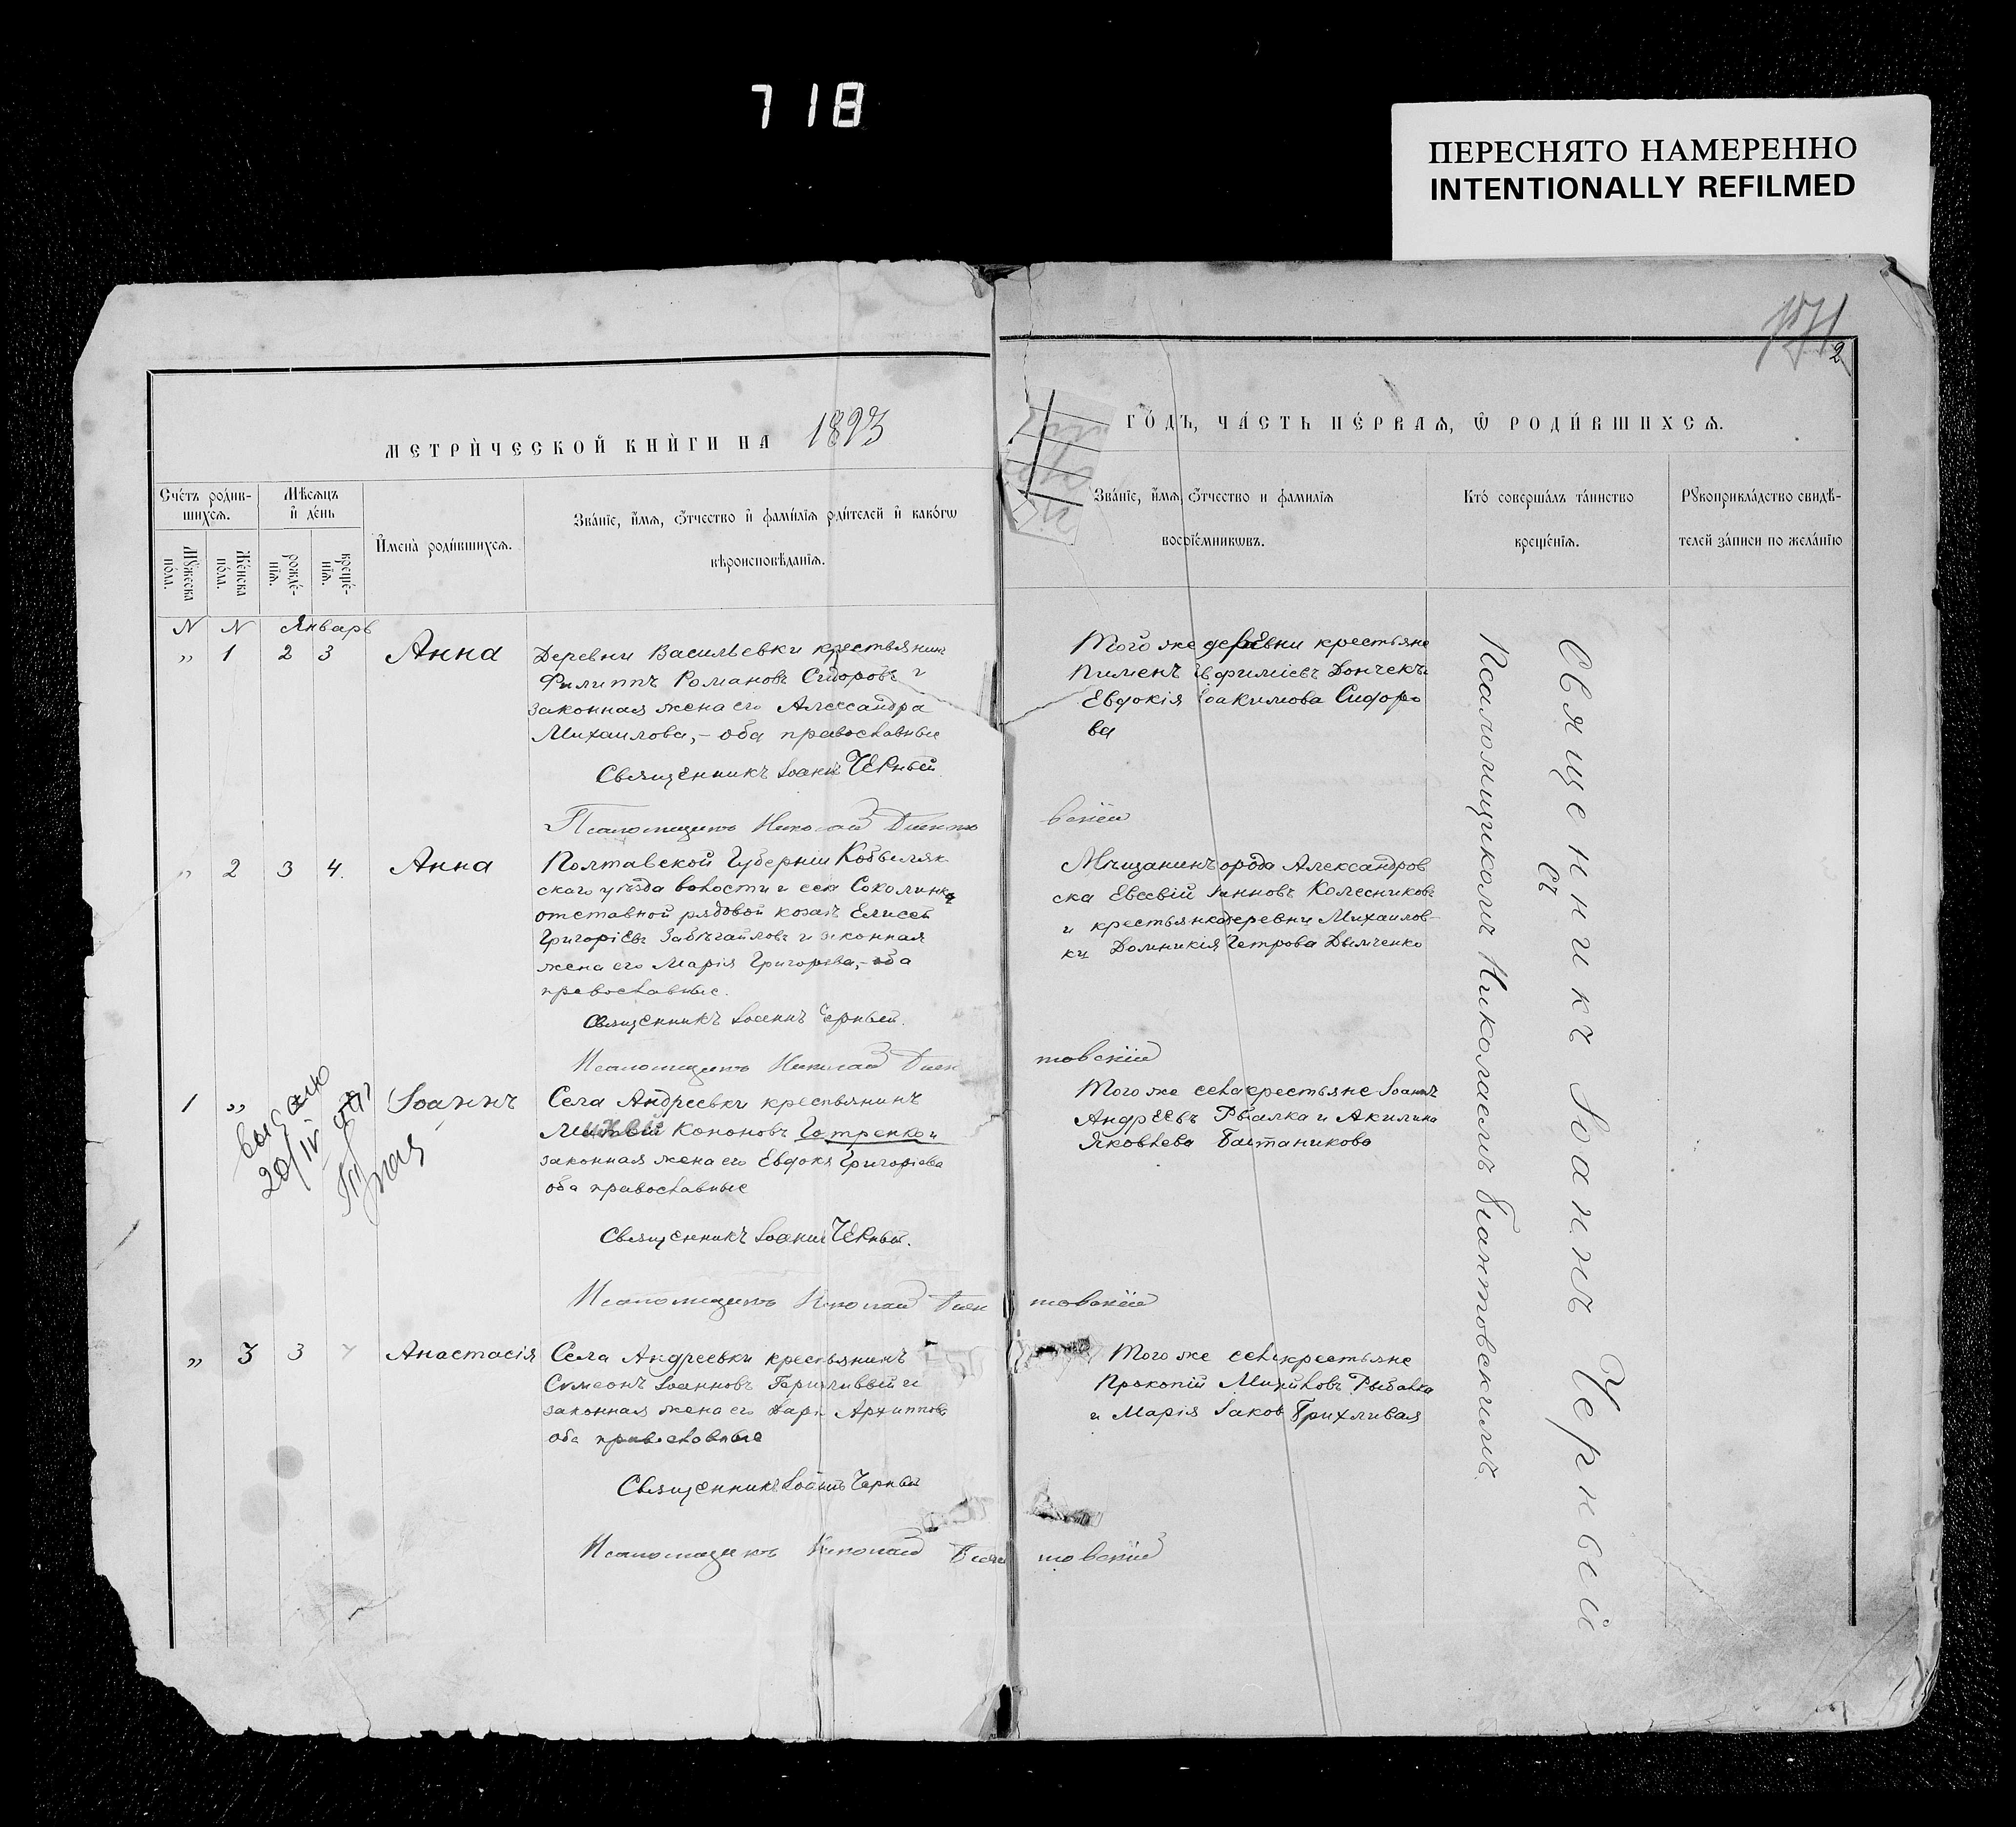 718
ПЕРЕСНЯТО НАМЕРЕННО
INTENTIONALLY REFILMED
2
МЕТРИ́ЧЕСКОЙ КНИ́ГИ НА 1893
ГО́ДЪ, ЧА́СТЬ ПЕ́РВАѦ, Ѡ РОДИ́ВШИХСѦ.
Сче́тъ роди́в-
шихсѧ.
Мѣсѧцъ
и̂ де́нь
Мꙋжеска
по́ла.
Же́нска
по́ла.
рожде́-
нїѧ.
креще́-
нїѧ.
И̂мена̀ роди́вшихсѧ.
Зва́нїе, и̂мѧ, ѻ҆́тчество и̂ фами́лїѧ роди́телей и̂ како́гѡ
вѣроисповѣ́данїѧ.
Зва́нїе, и̂мѧ, ѻ҆́тчество и фами́лїѧ
воспрїе́мникѡвъ.
Кто́ соверша́лъ та́инство
креще́нїѧ.
Рꙋкоприкла́дство свидѣ́-
телей за́писи по жела́нїю
N N Январь
„ 1 2 3 Анна
Деревни Васильевки крестьянинъ
Филиппъ Романовъ Сидоровъ и
законная жена его Александра
Михаилова, – оба православные
Священникъ Іоаннъ Черный
Псаломщикъ Николай
Того же деревни крестьяне
Пименъ Евфиміевъ Дончекъ
Евдокія Іоакимова Сидоро
ва
„ 2 3 4. Анна
Полтавской Губерніи Кобыляк-
скаго уѣзда волости и села Соколинки
отставной рядовой козакъ Елисей
Григоріевъ и законная
жена его Марія Григорьева, – оба
православные.
Священникъ Іоаннъ Черный.
Псаломщикъ Николай Биан
товскій
Мѣщанинъ города Александров
ска Евсевій Іоанновъ Колесниковъ
и крестьянка деревни Михаилов-
ки Домникія Петрова Дымченко
1 „ Іоаннъ
20/IV
Села Андреевки крестьянинъ
Кононовъ и
законная жена его Евдокія Григоріева
оба православные
Священникъ Іоаннъ Черный.
Псаломщикъ Николай Биан товскій
Того же села крестьяне Іоаннъ
Андреевъ Рыбалка и Акилина
Яковлева Баштаникова
„ 3 3 Анастасія
Села Андреевки крестьянинъ
Симеонъ Іоанновъ и
законная жена его Дарія Архиппова
оба православные
Священникъ Іоаннъ Черный
Псаломщикъ Николай Биан товскій
Того же села крестьяне
Прокопій Рыбалка
и Марія Іаков Брихливая
Священникъ Іоаннъ Черный
съ
Псаломщикомъ Николаемъ Біантовскимъ